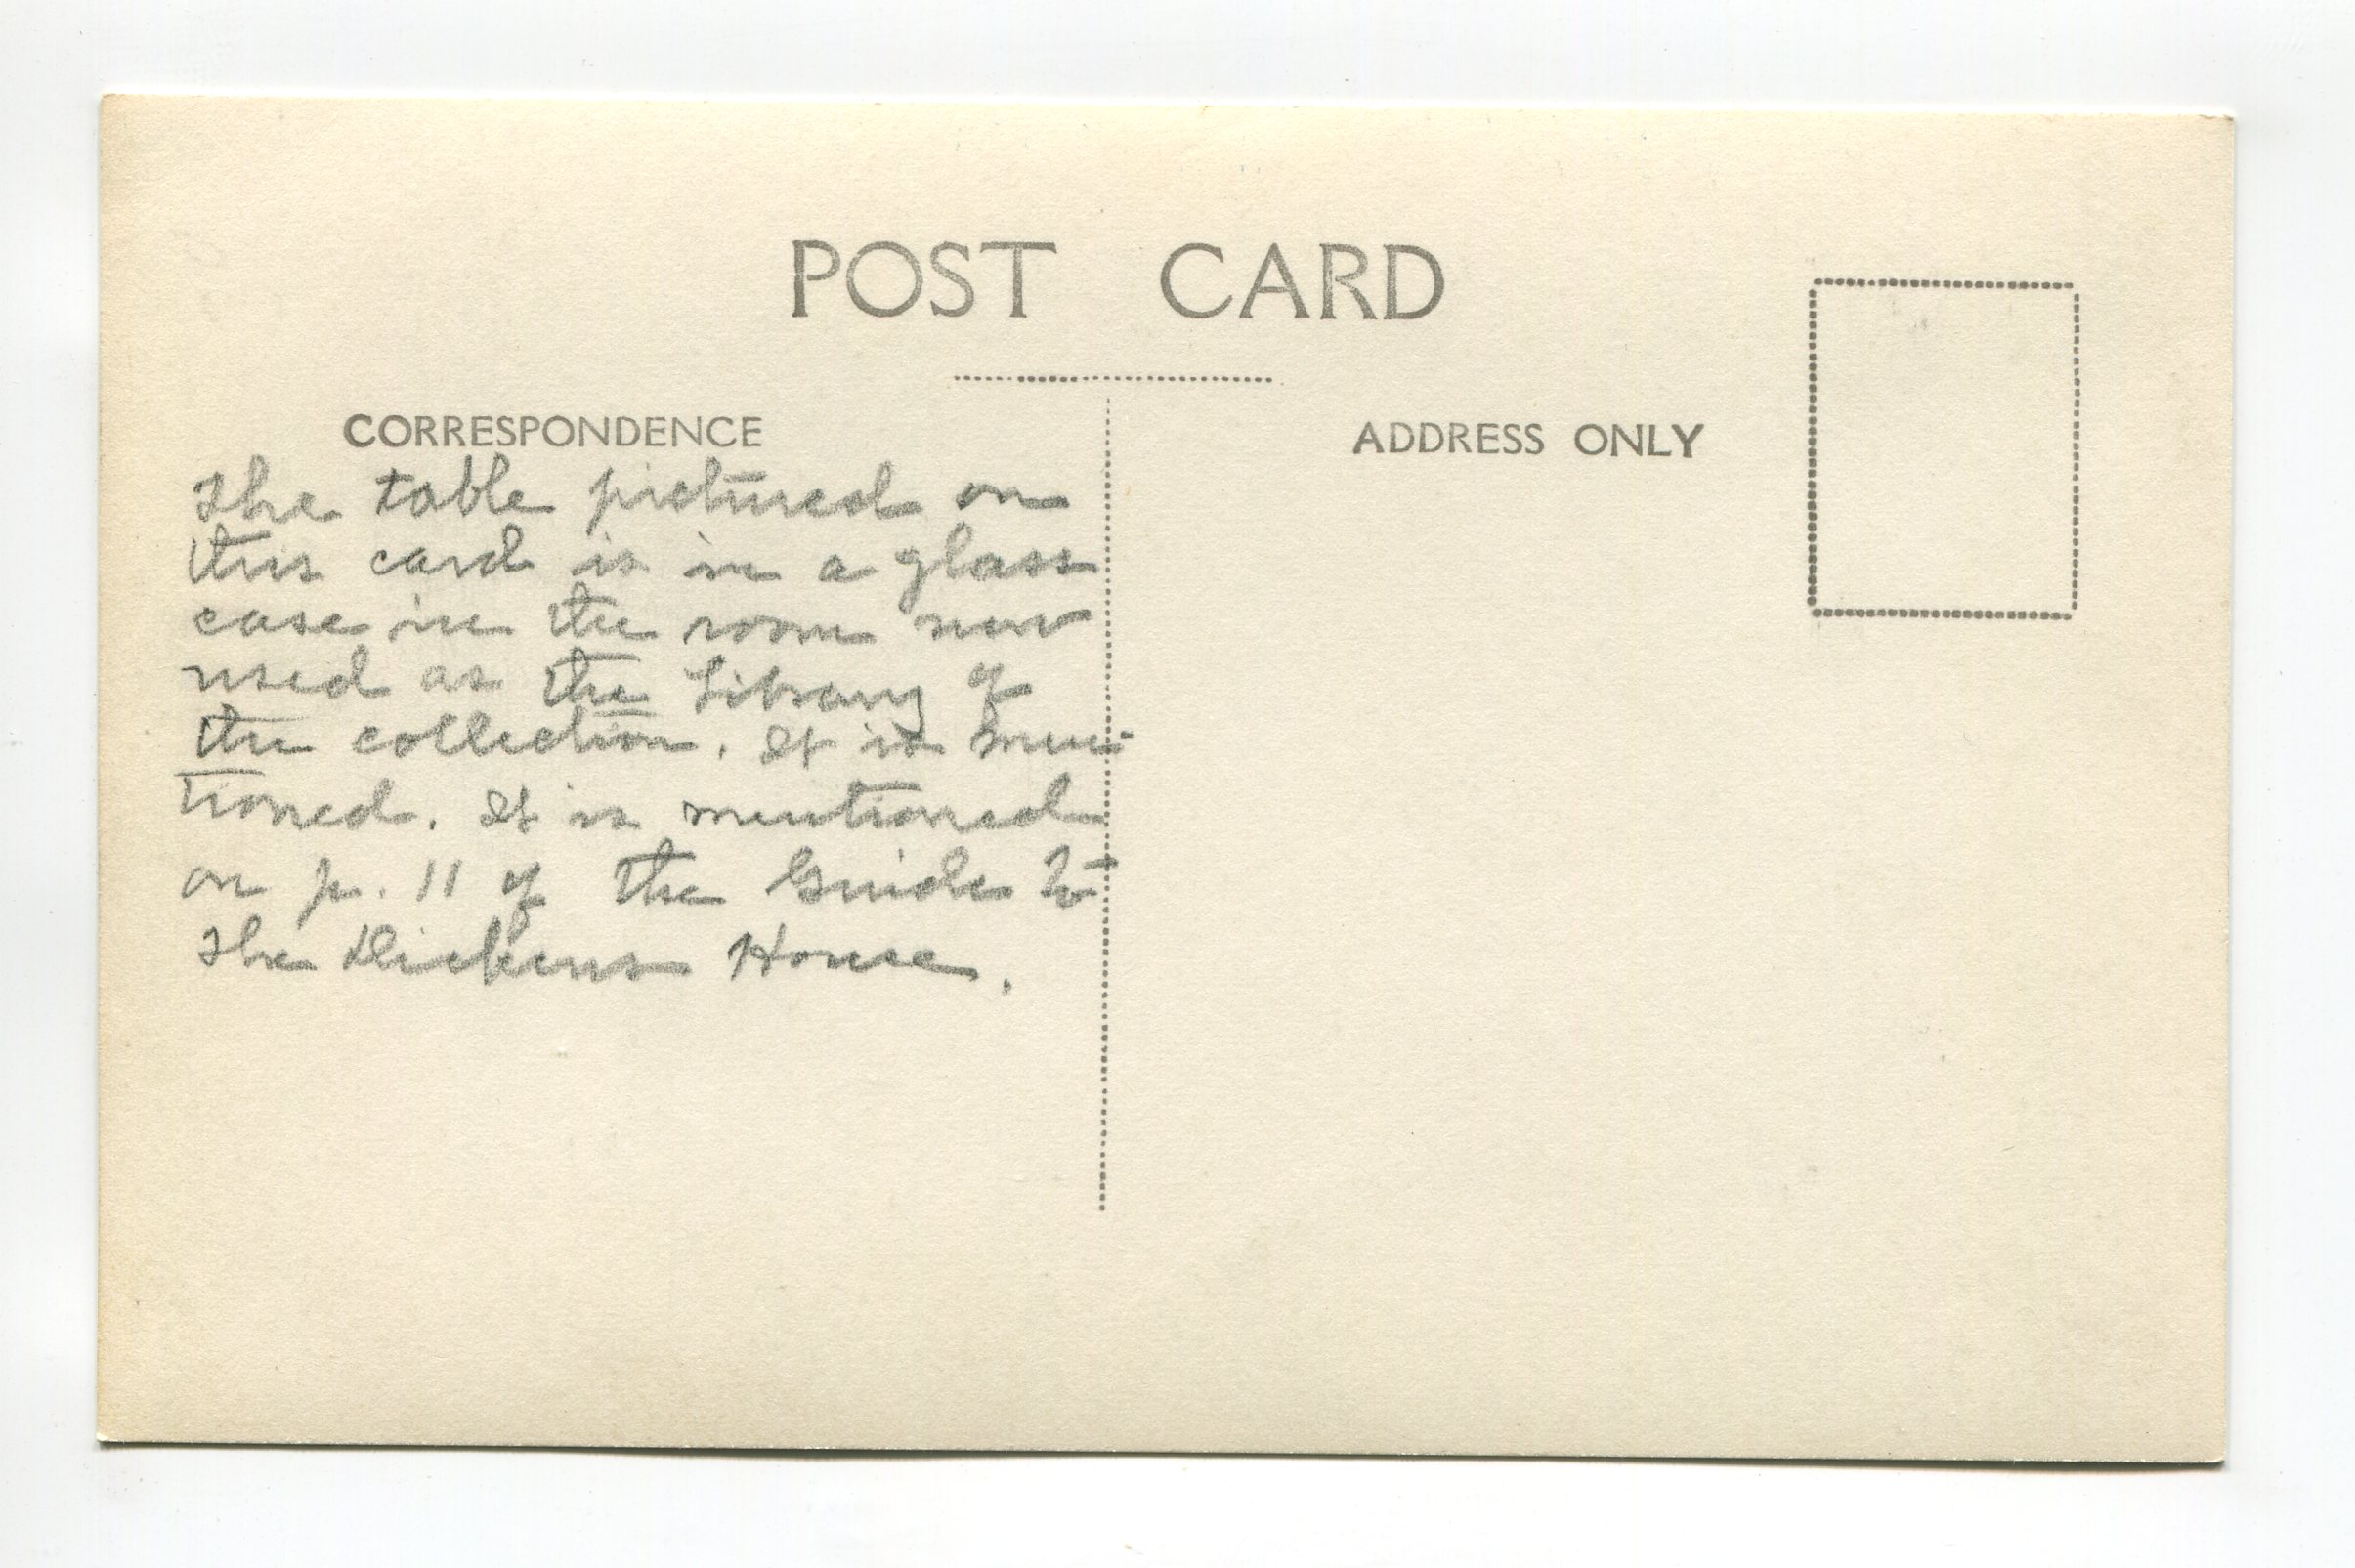 POST CARD
CORRESPONDENCE
ADDRESS ONLY
The table pictured on
this card is in a glass
case in the room now
used as the Library of
the collection. It is men-
tioned. It is mentioned
on p. 11 of the Guide to
The Dickens House.